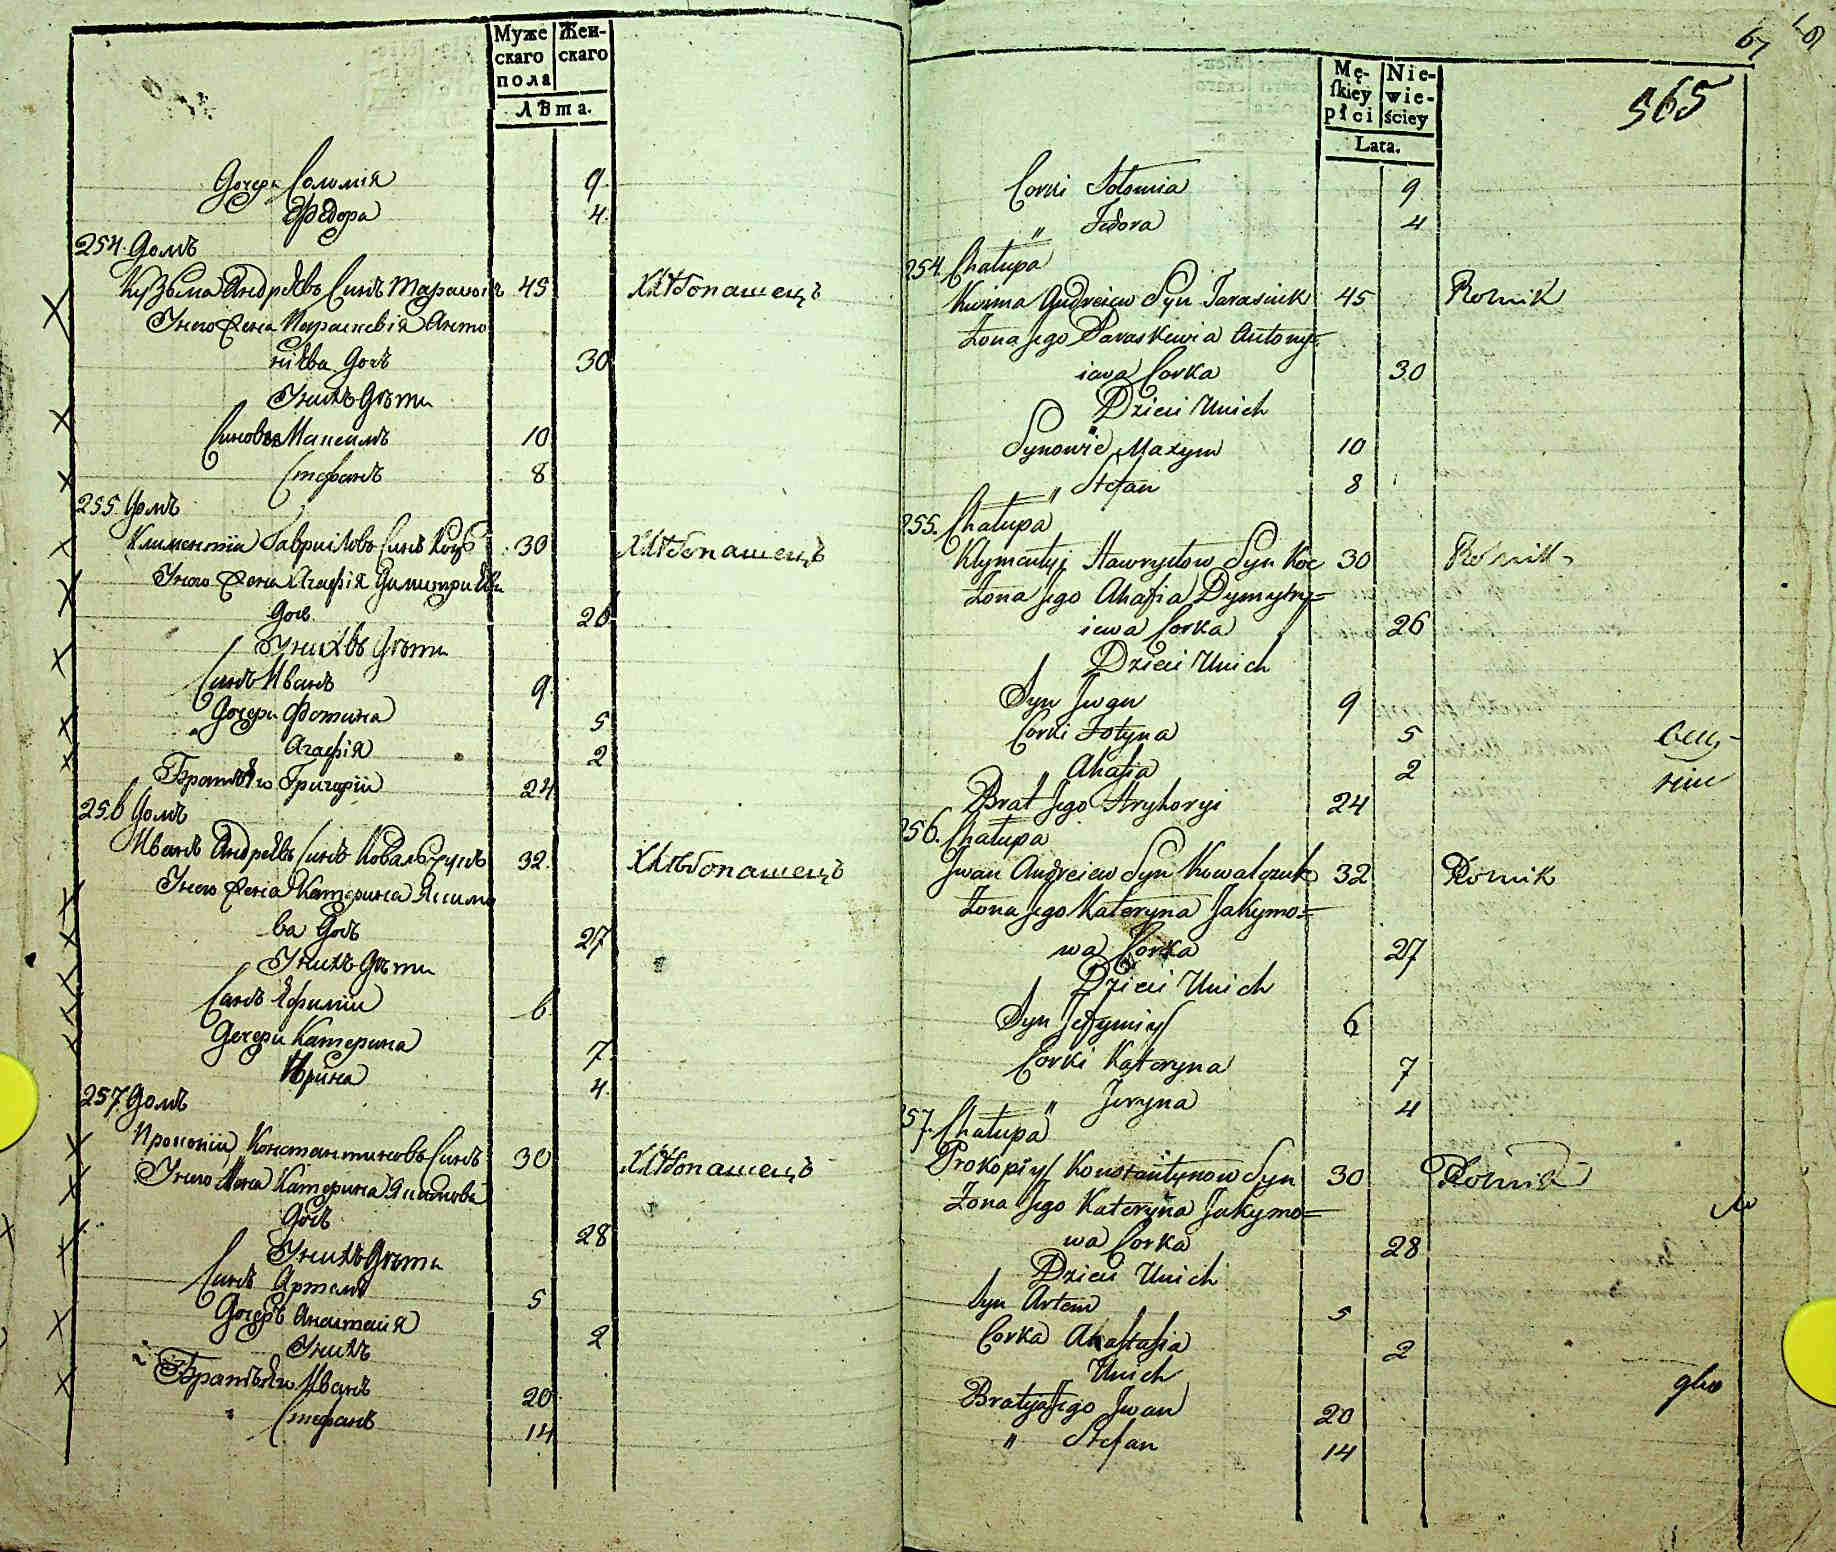 Муже
скаго
пола
Жен-
скаго
Лѣта.
Дочери Соломія 9
Ѳедора 4
254. Домъ
Кузьма Андреевъ Синъ Тарасюкъ 45 Хлѣбопашецъ
У него Жена Параскевія Анто
ніева Дочь 30
У нихъ Дѣти
Синове Максимъ 10
Стефанъ 8
255 Домъ
Климентій Гавриловъ Синъ Коцъ 30 Хлѣбопашецъ
У него Жена Агафія Димитріева
Дочь 26
У нихъ Дѣти
Синъ Иванъ 9
Дочери Фотина 5
Агафія 2
Братъ Его Григорій 24
256 Домъ
Иванъ Андреевъ Синъ Ковальчукъ 32 Хлѣбопашецъ
У него Жена Катерина Якимо
ва Дочь 27
У нихъ Дѣти
Синъ Ефимій 6
Дочери Катерина 7
Ирина 4
257 Домъ
Прокопій Константиновъ Синъ 30 Хлѣбопашецъ
У него Жена Катерина Якимова
Дочь 28
У нихъ Дѣти
Синъ Артемъ 5
Дочерь Анастасія 2
У нихъ
Братья Его Иванъ 20
Стефанъ 14
67
565
Mę-
skiey
płci
Nie-
wie-
ściey
Lata.
Corki Sołomia 9
" Fedora 4
254. Chałupa
Kuzma Andreiew Syn Tarasiuk 45 Rolnik
Żona Jego Paraskewia Antony=
iowa Corka 30
Dzieci Unich
Synowie Maxym 10
" Stefan 8
255. Chałupa
Klymentyj Hawryłow Syn Koc 30 Rolnik
Żona Jego Ahafia Dymytry=
iewa Corka 26
Dzieci Unich
Syn Jwan 9
Corki Fotyna 5
Ahafia 2
Brat Jego Hryhoryi 24
256. Chałupa
Jwan Andreiew Syn Kowalczuk 32 Rolnik
Żona Jego Kateryna Jakymo=
wa Corka 27
Dzieci Unich
Syn Jefymiy 6
Corki Kateryna 7
" Jeryna 4
257. Chałupa
Prokopiy Konstantynow Syn 30 Rolnik
Żona Jego Kateryna Jakymo=
wa Corka 28
Dzieci Unich
Syn Artem 5
Corka Anastasia 2
Unich
Bratyia Jego Jwan 20
" Stefan 14